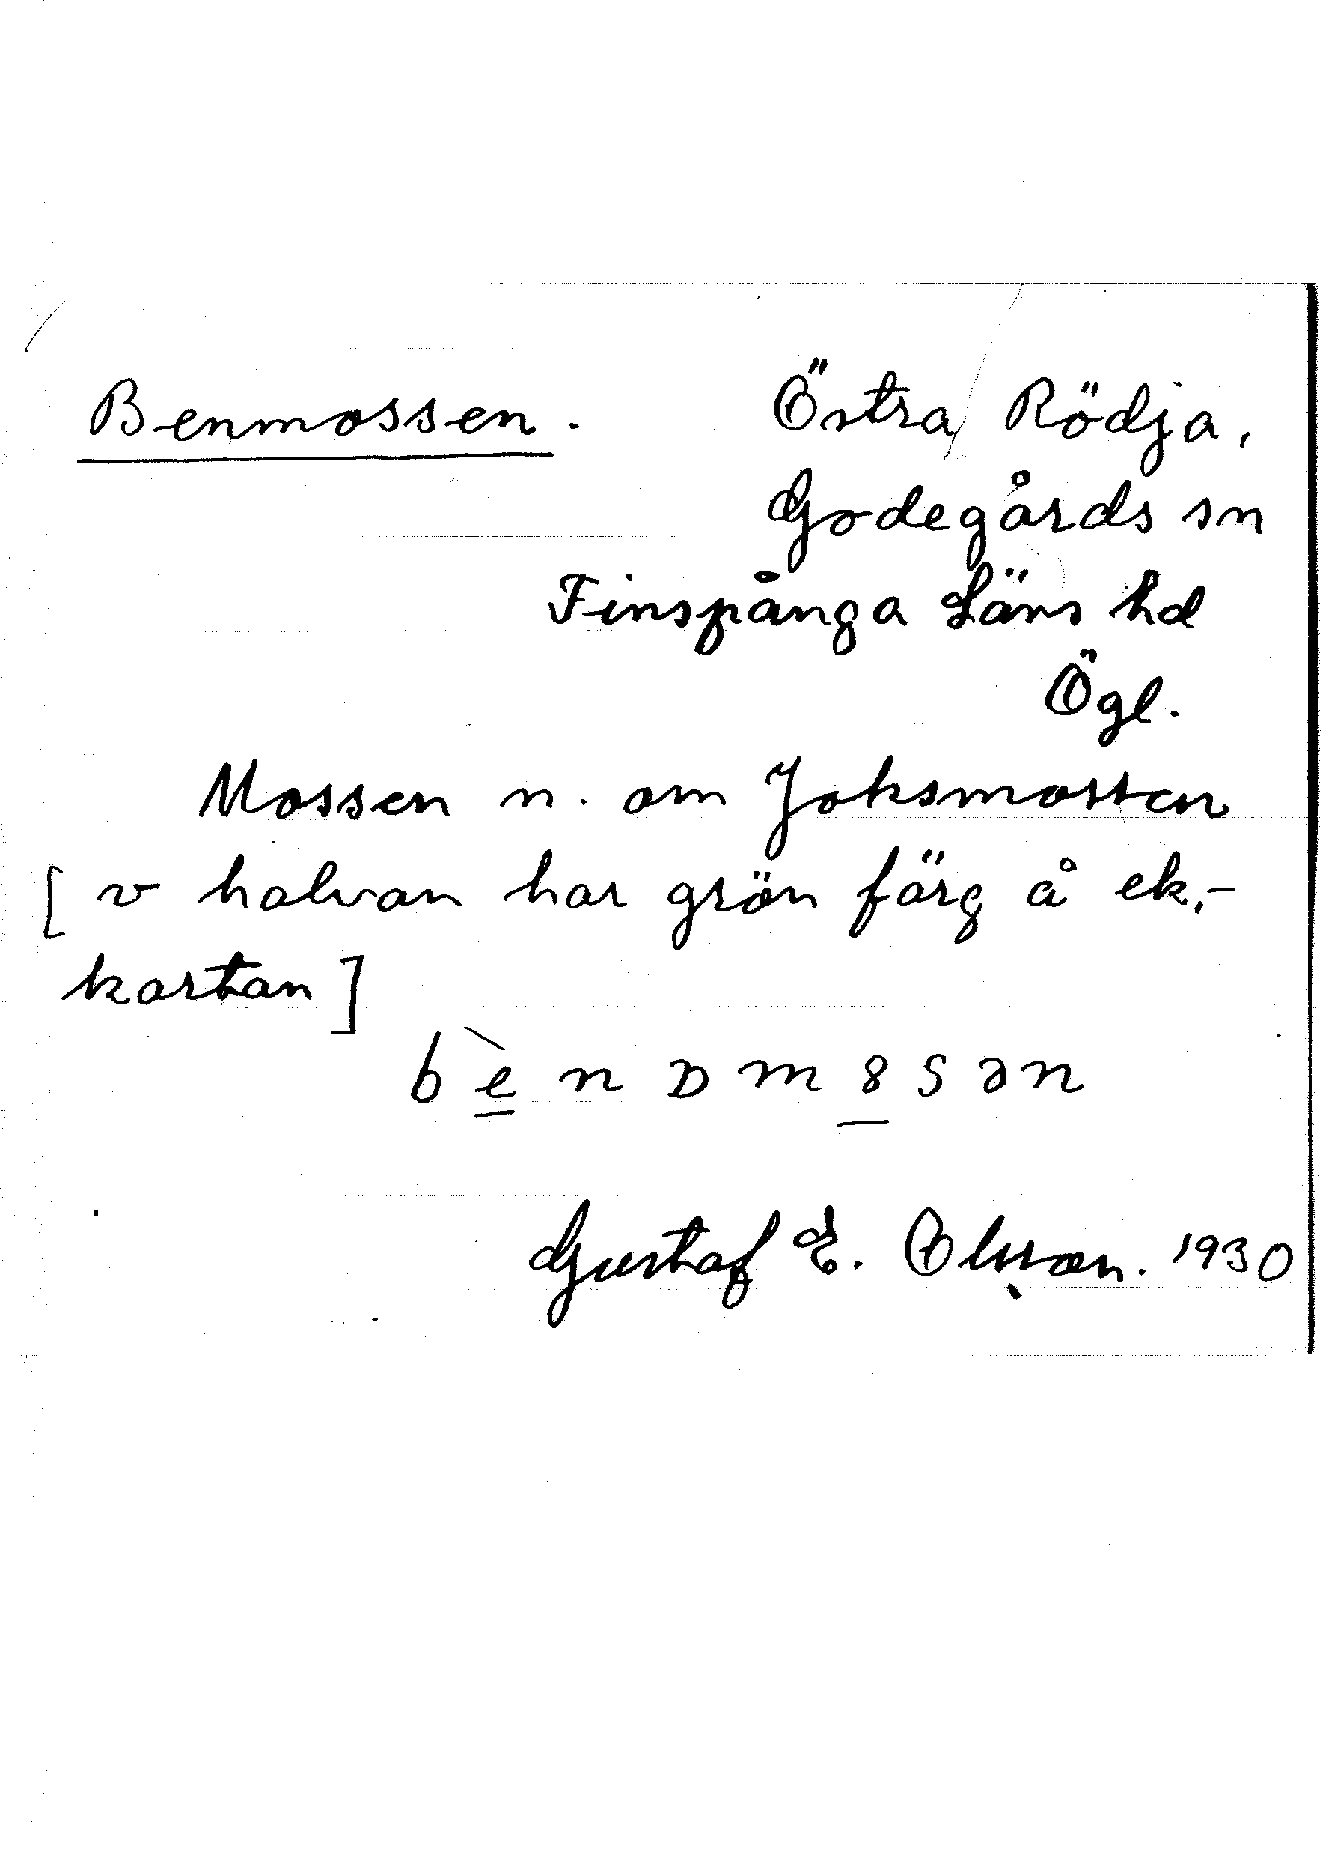 Benmossen. Östra Rödja,
Godegårds sn
Finspånga Läns hd
Ögl.
Mossen n. om Joksmossen
[ v halvan har grön färg å ek.-
kartan ]
bènɒm8sən
Gustaf E. Olsson. 1930